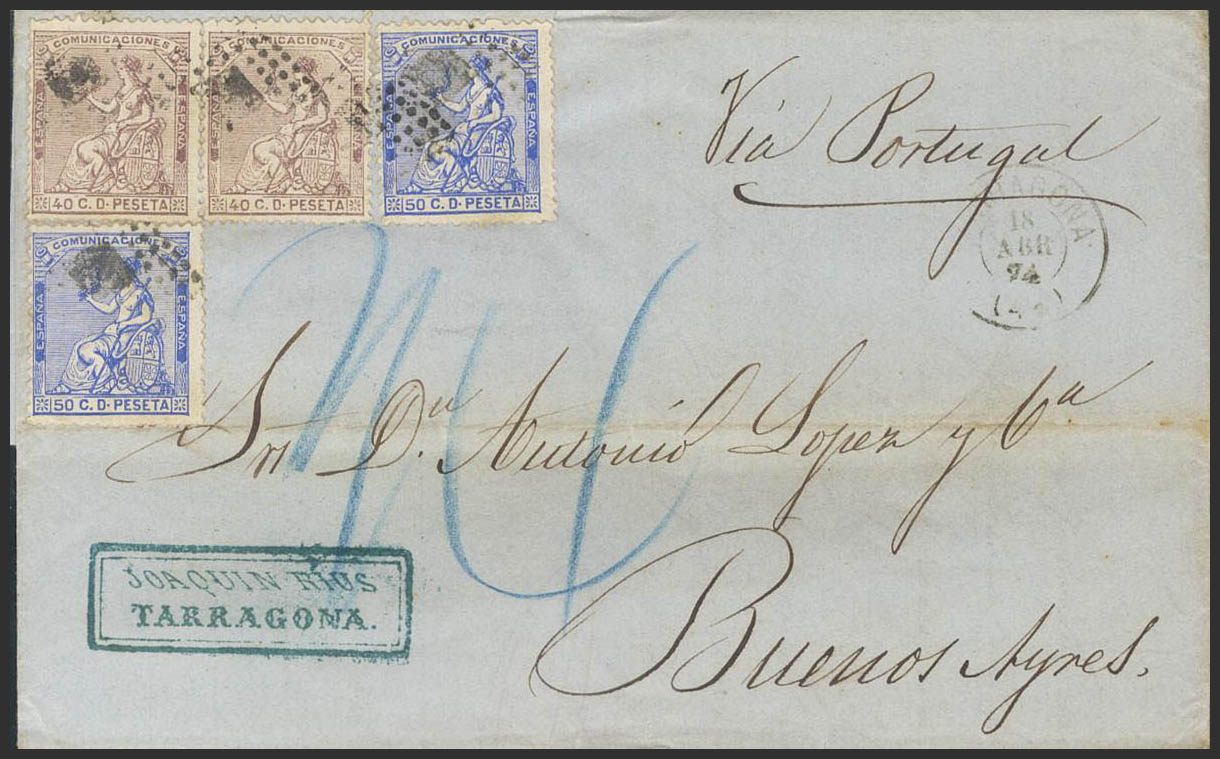 COMUNICACIONES
ESPAÑA
ESPAÑA
40 C. D. PESETA
COMUNICACIONES
ESPAÑA
ESPAÑA
40 C. D. PESETA
COMUNICACIONES
ESPAÑA
ESPAÑA
50 C. D. PESETA
COMUNICACIONES
ESPAÑA
ESPAÑA
50 C. D. PESETA
Via Portugal
18
ABR
74
Sr. Dn Antonió Lopez y Ca
Buenos Ayres.
JOAQUIN RIUS
TARRAGONA.